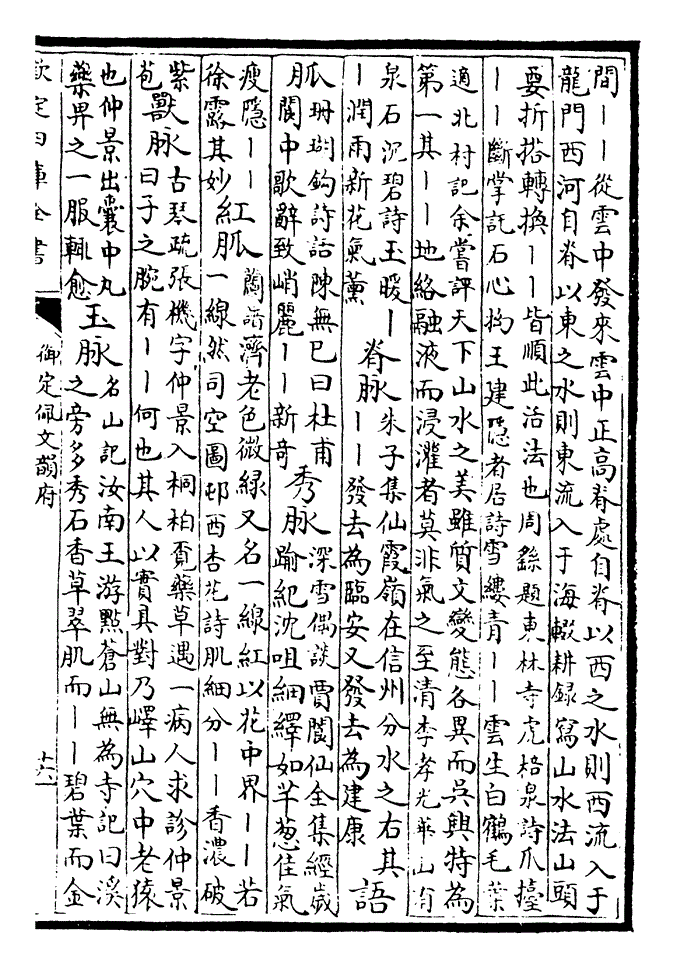 間丨丨從雲中發來雲中正高脊處自脊以西之水則西流入于
龍門西河自脊以東之水則東流入于海輟耕録寫山水法山頭
要折搭轉換丨丨皆順此活法也周繇題東林寺虎格泉詩爪擡
丨丨斷掌託石心拗王建隱者居詩雪縷青丨丨雲生白鶴毛葉
適北村記余嘗評天下山水之美雖質文變態各異而吳興特為
第一其丨丨地絡融液而浸灌者莫非氣之至清李孝光華山有
泉石沉碧詩玉暖丨
丨潤雨新花氣薰
脊脈
朱子集仙霞嶺在信州分水之右其
丨丨發去為臨安又發去為建康
語
脈
珊瑚鈎詩話陳無巳曰杜甫
閬中歌辭致峭麗丨丨新奇
秀脈
深雪偶談賈閬仙全集經歲
踰紀沈咀細繹如芊葱佳氣
瘦隱丨丨
徐露其妙
紅脈
蘭譜濟老色微緑又名一線紅以花中界丨丨若
一線然司空圖邨西杏花詩肌細分丨丨香濃破
紫
苞
獸脈
古琴疏張機字仲景入桐柏覓藥草遇一病人求診仲景
曰子之腕有丨丨何也其人以實具對乃嶧山穴中老猿
也仲景出囊中丸
藥畀之一服輒愈
玉脈
名山記汝南王游點蒼山無為寺記曰溪
之旁多秀石香草翠肌而丨丨碧葉而金
欽定四庫全書
御定佩文韻府
十六